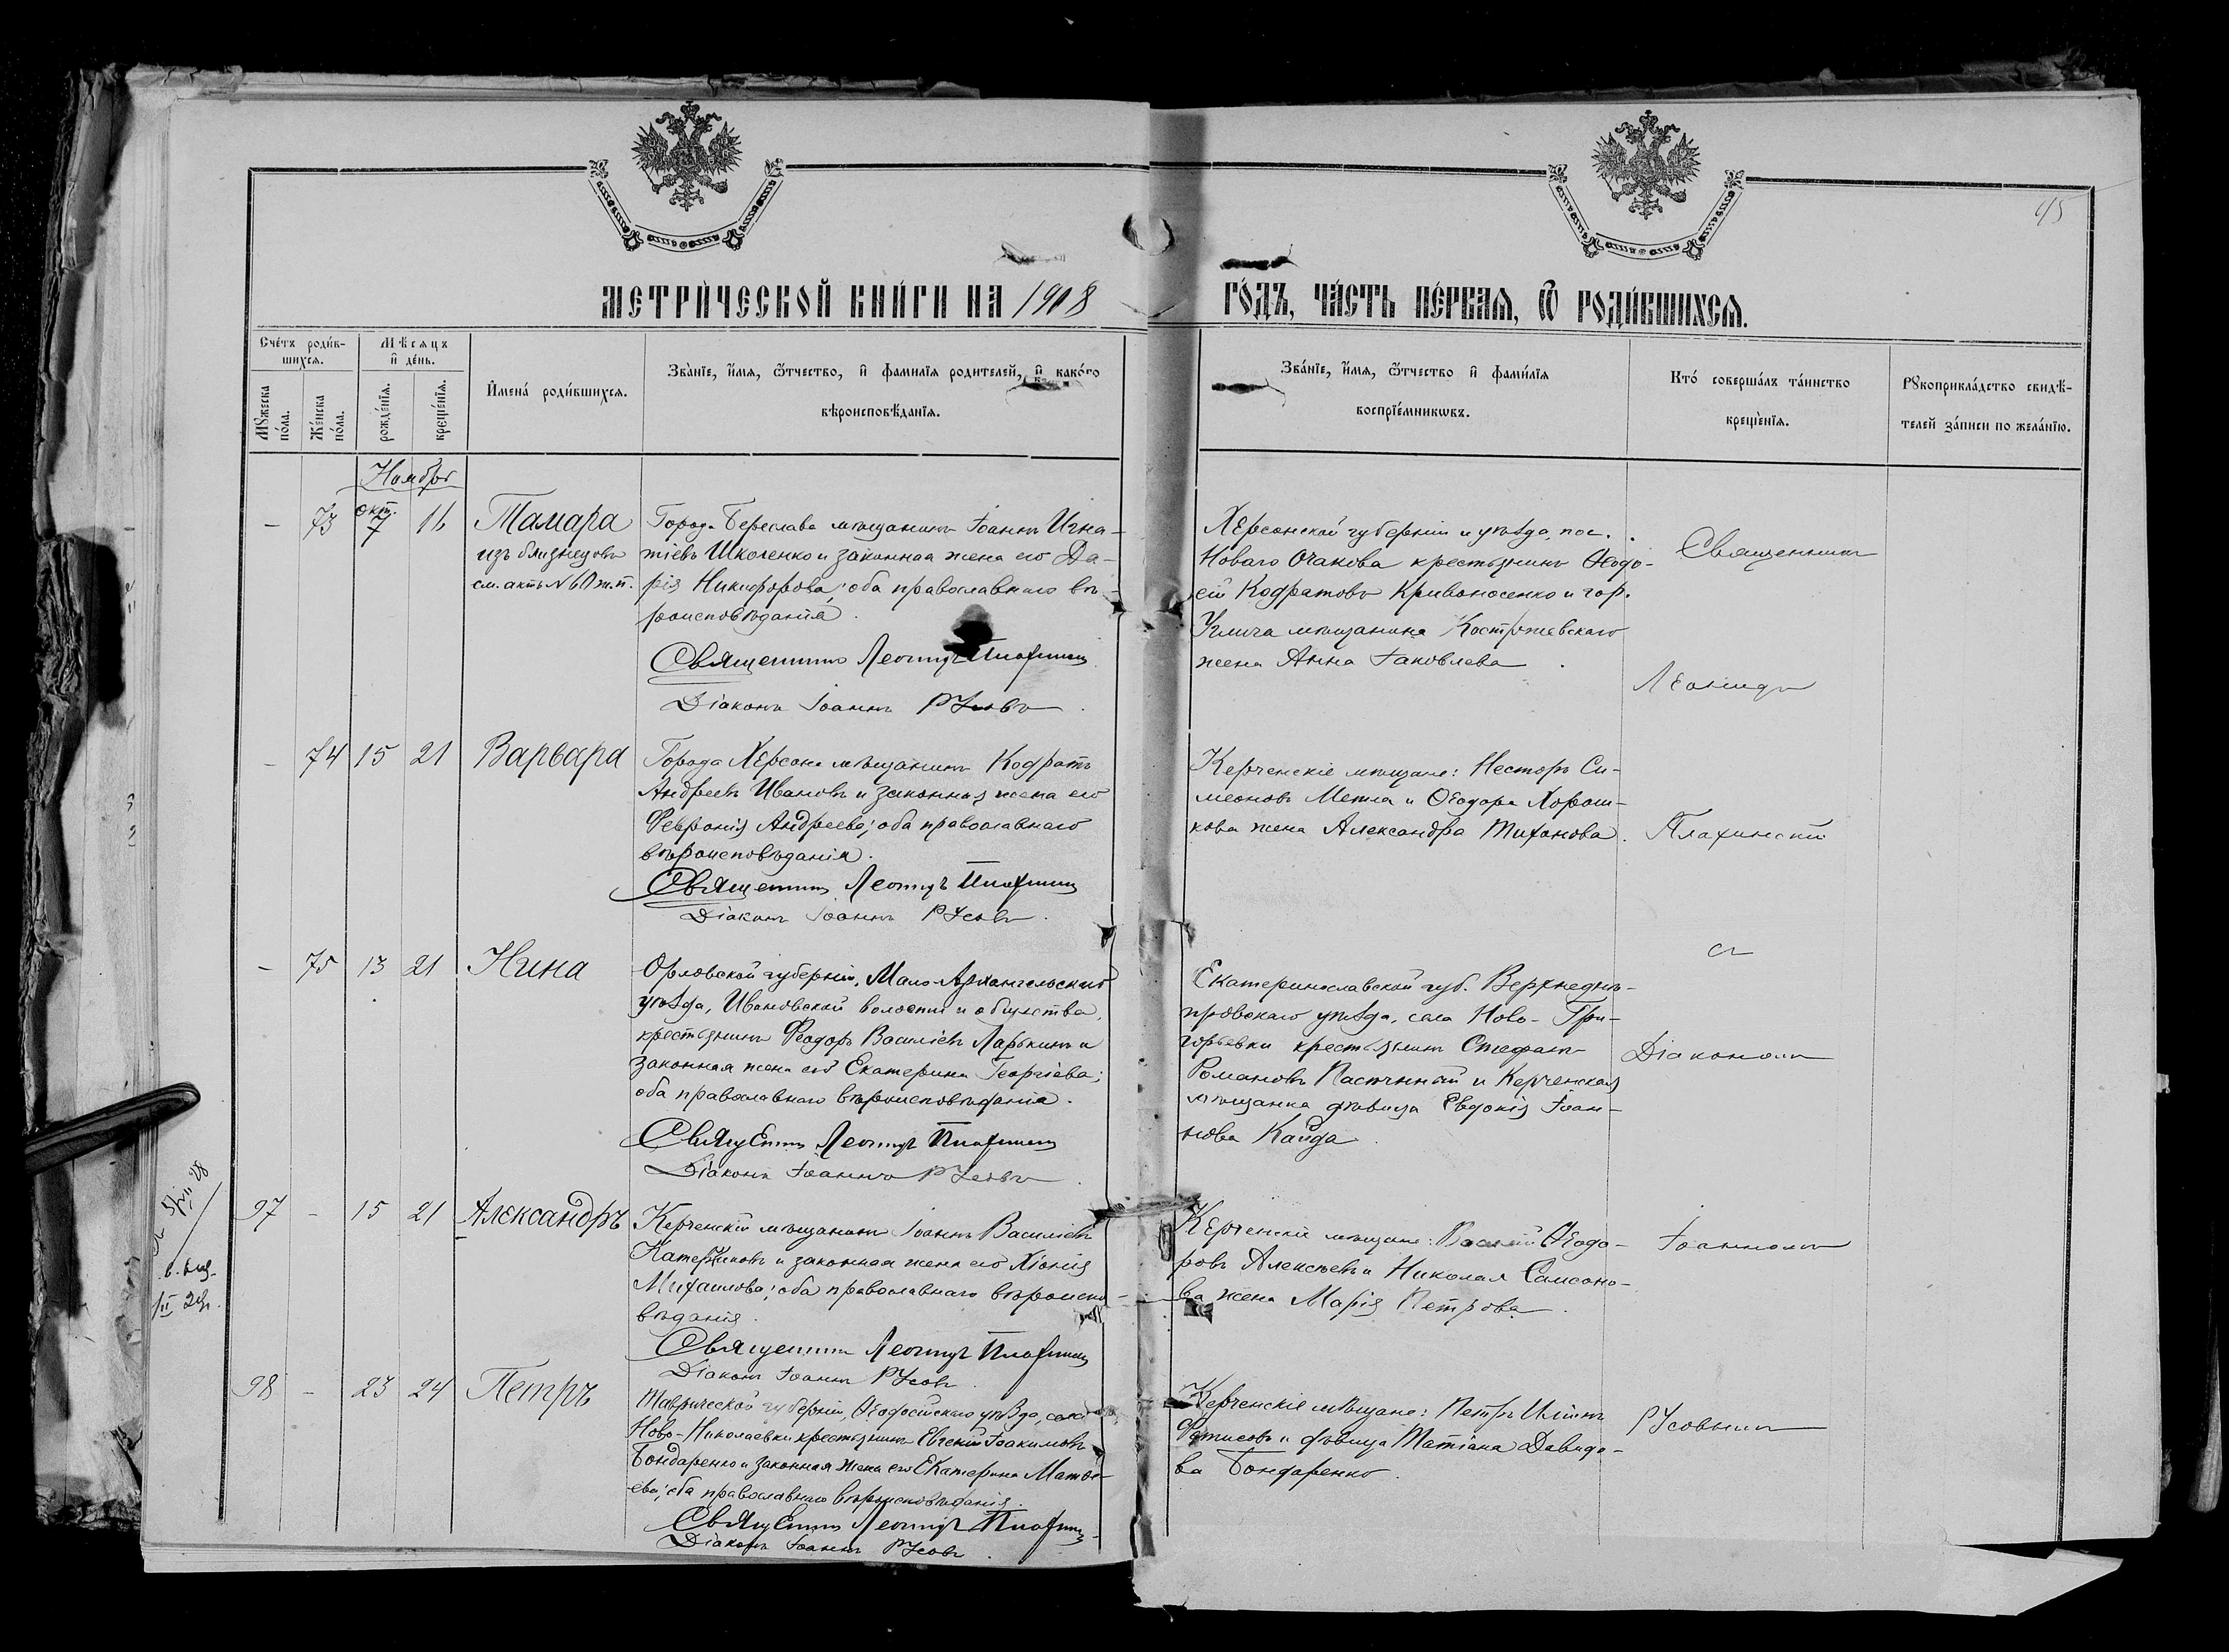 45
МЕТРИ́ЧЕСКОЙ КНИ́ГИ НА 1908 ГО́ДЪ, ЧА́СТЬ ПЕ́РВАѦ, Ѿ РОДИ́ВШИХСѦ.
Сче́тъ роди́в-
шихсѧ.
Мѣсѧцъ
и҆ де́нь.
Мꙋжеска
по́ла.
Же́нска
по́ла.
рожде́нїѧ.
креще́нїѧ.
И҆мена́ роди́вшихсѧ.
Зва́нїе, и҆́мѧ, ѻ҆́тчество, и҆ фамилїѧ родителей, и҆ како́гѡ
вѣроисповѣ́данїѧ.
Зва́нїе, и҆́мѧ, ѻ҆́тчество и҆ фами́лїѧ
воспрїе́мникѡвъ.
Кто́ соверша́лъ та́инство
креще́нїѧ.
Рꙋкоприкла́дство свидѣ́-
телей за́писи по жела́нїю.
Ноябрь
– 73 окт. 7 16 Тамара
изъ близнецовъ
см. актъ №
Города Береслава мѣщанинъ Іоаннъ Игна-
тіевъ Школенко и законная жена его Да-
рія Никифорова; оба православнаго вѣ-
роисповѣданія.
Священникъ Леонидъ
Діаконъ Іоаннъ Русовъ.
Херсонской губерніи и уѣзда, пос.
Новаго Очакова крестьянинъ Ѳеодо-
сій Кодратовъ Кривоносенко и гор.
Углича мѣщанина
жена Анна Іаковлева.
Священникъ
Леонидъ
– 74 15 21 Варвара
Города Херсона мѣщанинъ Кодратъ
Андреевъ Ивановъ и законная жена его
Февронія Андреева; оба православнаго
вѣроисповѣданія.
Священникъ Леонидъ
Діаконъ Іоаннъ Русовъ.
Керченскіе мѣщане: Несторъ Си-
меоновъ Метла и Ѳеодора Хорош-
кова жена Александра Тихонова.
съ
– 75 13 21 Нина
Орловской губерніи, Мало-Архангельскаго
уѣзда, Ивановской волости и общества,
крестьянинъ Ѳеодоръ Василіевъ Ларькинъ и
законная жена его Екатерина Георгіева;
оба православнаго вѣроисповѣданія.
Священникъ Леонидъ
Діаконъ Іоаннъ Русовъ.
Екатеринославской губ. Верхнеднѣ-
провскаго уѣзда, села Ново-Гри-
горьевки крестьянинъ Стефанъ
Романовъ и Керченская
мѣщанка дѣвица Евдокія Іоан-
нова Кайда.
Діакономъ
97 – 15 21 Александръ
Керченскій мѣщанинъ Іоаннъ Василіевъ
и законная жена его Хіонія
Михаилова; оба православнаго вѣроиспо-
вѣданія.
Священникъ Леонидъ
Діаконъ Іоаннъ Русовъ
Керченскіе мѣщане: Василій Ѳеодо-
ровъ Алексѣевъ и Николая Самсоно-
ва жена Марія Петрова.
Іоанномъ
98 – 23 24 Петръ
Таврической губерніи, Ѳеодосійскаго уѣзда, села
Ново-Николаевки крестьянинъ Евгеній Іоакимовъ
Бондаренко и законная жена его Екатерина Матѳе-
ева; оба православнаго вѣроисповѣданія.
Священникъ Леонидъ
Діаконъ Іоаннъ Русовъ.
Керченскіе мѣщане: Петръ Иліинъ
и дѣвица Татіана Давидо-
ва Бондаренко.
Русовымъ